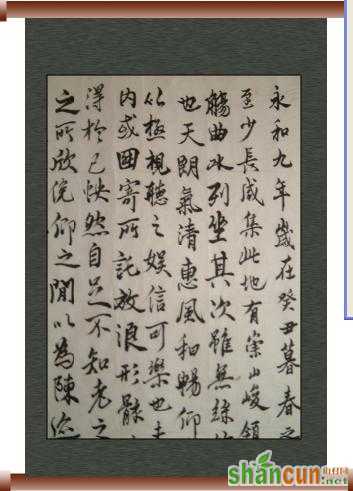 永和九年歲在癸丑暮春之
至少長咸集此地有崇山峻領
觴曲水列坐其次雖無絲竹
也天朗氣清惠風和暢仰
以極視聽之娛信可樂也夫
內或因寄所託放浪形骸
得於己怏然自足不知老之
之所欣俛仰之間以為陳迹
shancun
.net